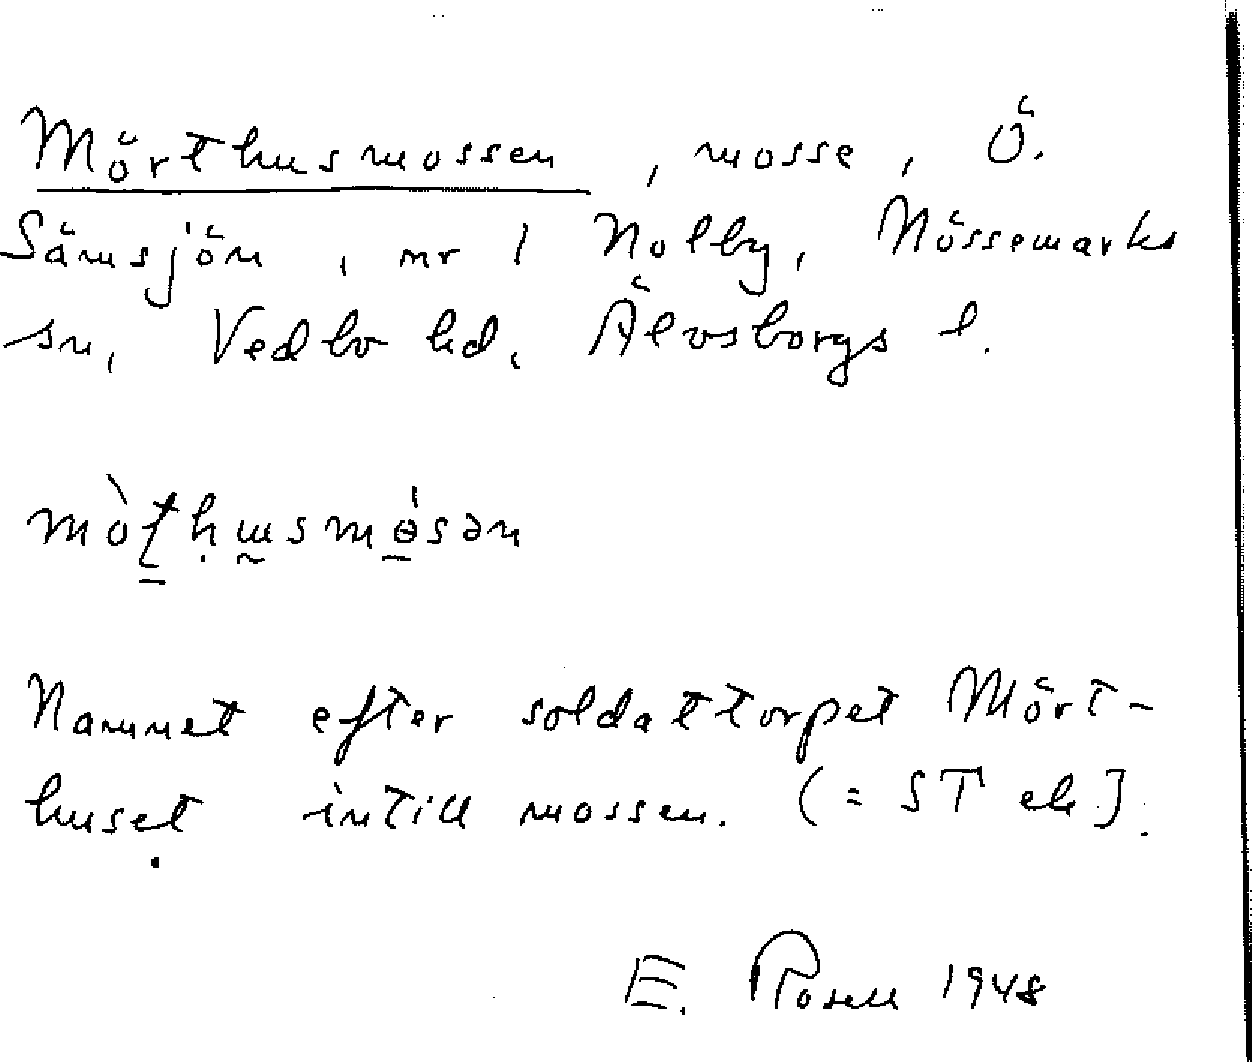 Mörthusmossen, mosse, Ö.
Sämsjön, nr 1 Nolby, Nössemarks
sn, Vedbo hd, Älvsborgs l.
Namnet efter soldattorpet Mört-
huset intill mossen. (= ST
E. Rosell 1948